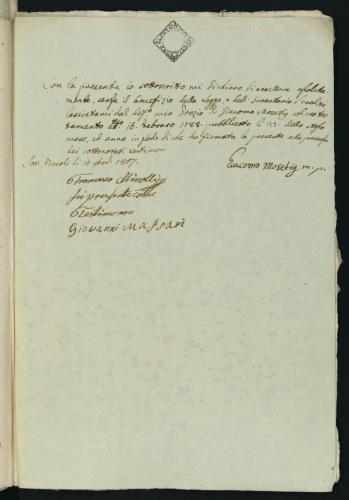 Con la presente io sottoscritto mi dichiaro di accettare assoluta
mente, senza il benefizio della legge, e dell' inventario, l'eredità
lasciatami dal mio Giacomo Mosetig col suo tes
tamento 16. Febraro 1788. pubblicato li dello stesso
mese, ed anno in fede di che ho firmata la presente alla presenza
dei sottonotati testimoni
San li 10 1807.
Giacomo Mosetig m. p.
Francesco
fui presente come
Testimonio
Giovanni Massari